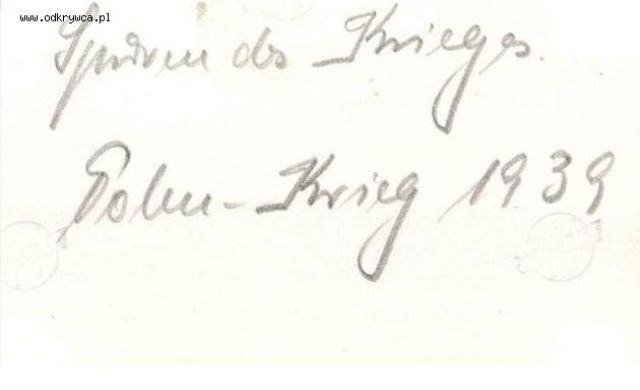 www.odkrywca.pl
Spuren des Krieges.
Polen-Krieg 1939